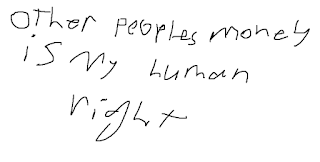 other peoples money
is my human
right